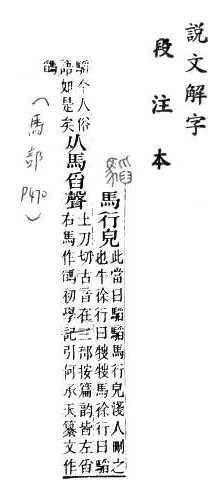 說文解字
段注本
馬行皃
此當曰馬行皃淺人刪之
也牛徐行曰馬徐行曰
今人俗
語如是矣
从馬舀聲
土刀切古音在三部按篇韵皆左舀
右馬作初學記引何承天纂文作
（馬部 P470）